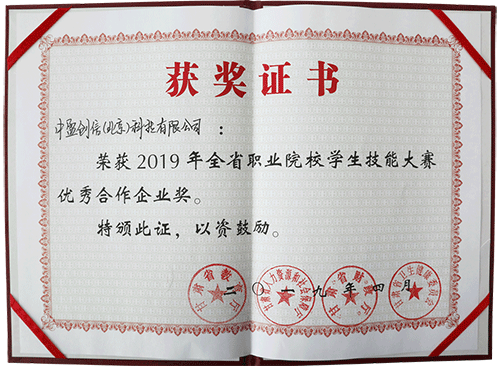 获奖证书
中盈创信(北京)科技有限公司：
荣获2019年全省职业院校学生技能大赛
优秀合作企业奖。
特颁此证，以资鼓励。
二〇一九年四月
甘肃省教育厅
甘肃省人力资源和社会保障厅
甘肃省财政厅
甘肃省卫生健康委员会